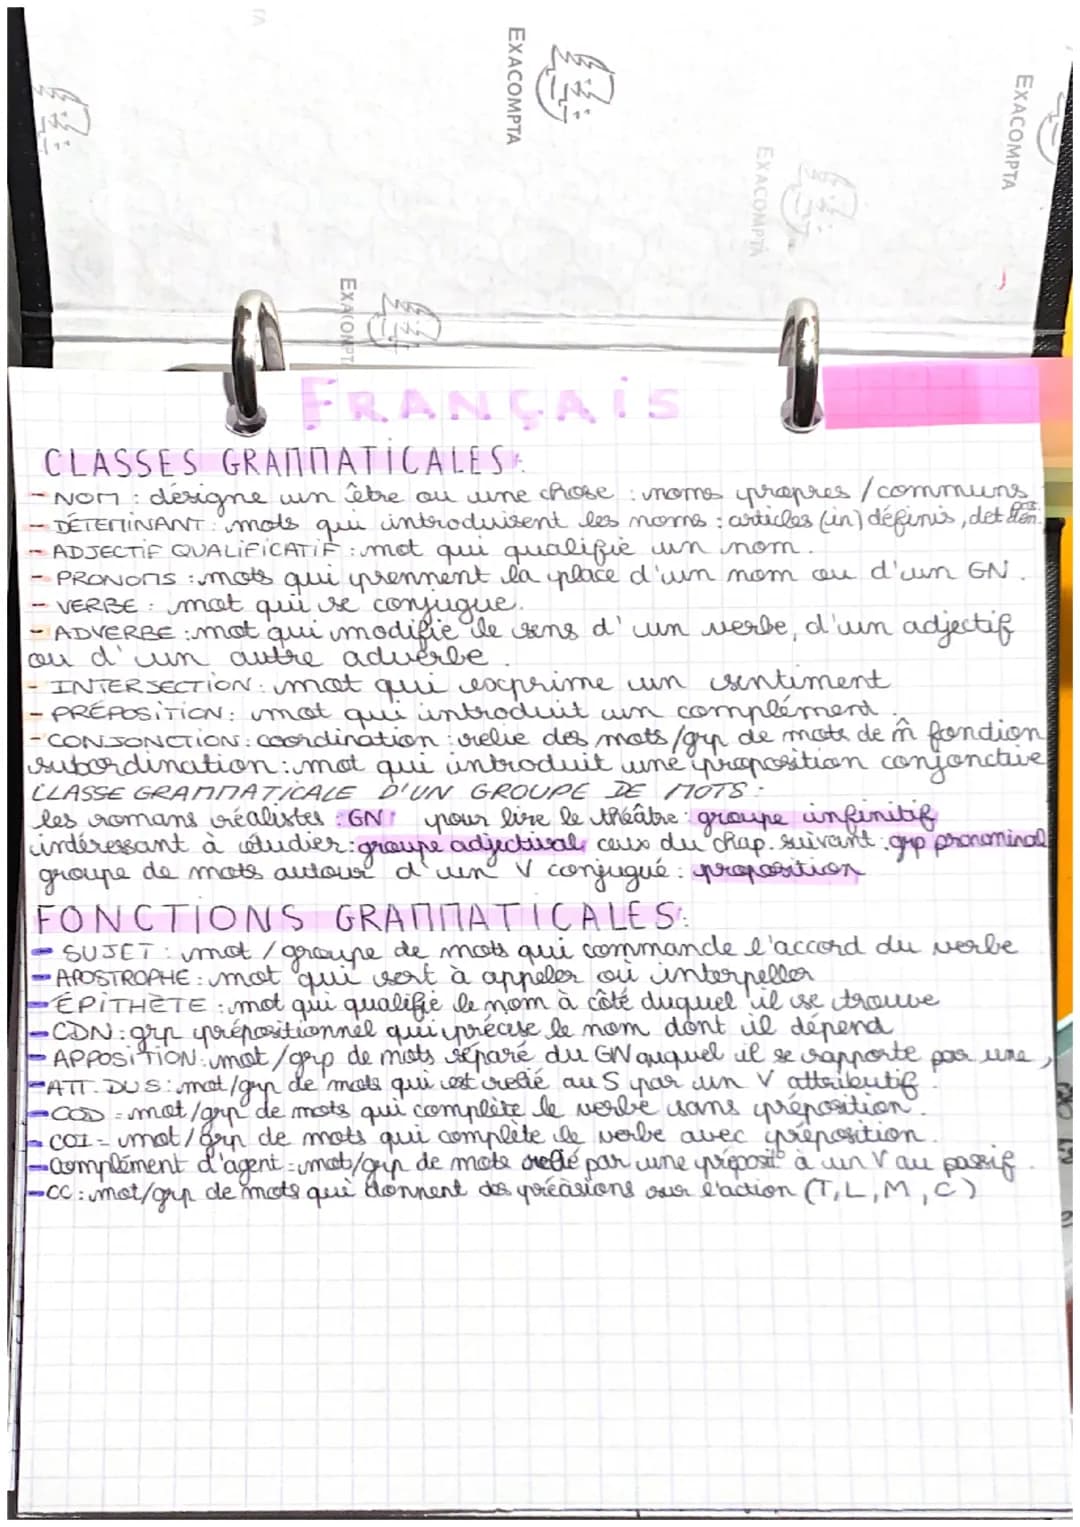 EXACOMPTA
EXACOMPTA
EXACOMPTA
EXACOMPT
FRANÇAIS
CLASSES GRAMMATICALES:
- NOM : désigne un être ou une chose : noms propres / communs
- DÉTEMINANT : mots qui introduisent les noms : articles (in)définis, det pos. dém.
- ADJECTIF QUALIFICATIF : mot qui qualifie un nom.
- PRONOMS : mots qui prennent la place d'un nom ou d'un GN.
- VERBE : mot qui se conjugue.
- ADVERBE : mot qui modifie le sens d'un verbe, d'un adjectif
ou d'un autre adverbe.
- INTERJECTION : mot qui exprime un sentiment
- PRÉPOSITION : mot qui introduit un complément.
- CONJONCTION : coordination : relie des mots/grp de mots de m̂ fonction
subordination : mot qui introduit une proposition conjonctive
CLASSE GRAMMATICALE D'UN GROUPE DE MOTS :
les romans réalistes : GN pour lire le théâtre : groupe infinitif
intéressant à étudier : groupe adjectival, ceux du chap. suivant : grp pronominal
groupe de mots autour d'un V conjugué : proposition
FONCTIONS GRAMMATICALES :
- SUJET : mot / groupe de mots qui commande l'accord du verbe
- APOSTROPHE : mot qui sert à appeler ou interpeller
- ÉPITHÈTE : mot qui qualifie le nom à côté duquel il se trouve
- CDN : grp prépositionnel qui précise le nom dont il dépend
- APPOSITION : mot / grp de mots séparé du GN auquel il se rapporte par une ,
- ATT. DU S : mot/grp de mots qui est relié au S par un V attributif.
- COD = mot/grp de mots qui complète le verbe sans préposition.
- COI = mot/grp de mots qui complète le verbe avec préposition.
- Complément d'agent = mot/grp de mots relié par une préposit° à un V au passif.
- CC : mot/grp de mots qui donnent des précisions sur l'action (T, L, M, C)